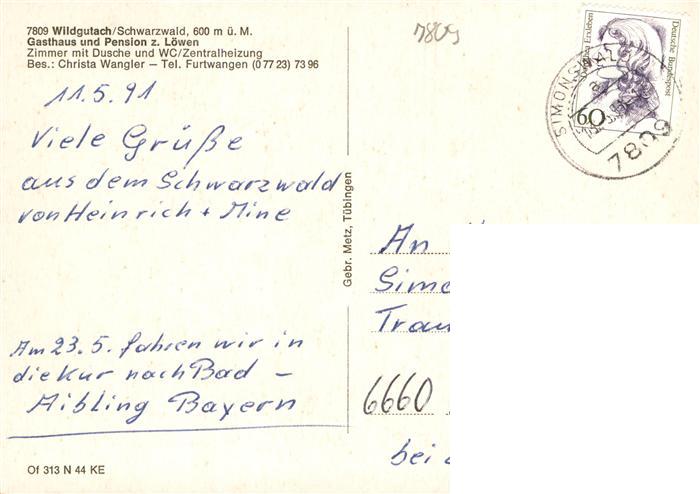 7809 Wildgutach/Schwarzwald, 600 m ü. M.
Gasthaus und Pension z. Löwen
Zimmer mit Dusche und WC/Zentralheizung
Bes.: Christa Wangler – Tel. Furtwangen (0 77 23) 73 96
11.5.91
Viele Grüße
aus dem Schwarzwald
von Heinrich + Mine
Am 23.5. fahren wir in
die Kur nach Bad –
Aibling Bayern
Of 313 N 44 KE
Gebr. Metz, Tübingen
7809
Deutsche Bundespost
60
SIMONSWALD
7809
An
Sime
Trau
6660
bei